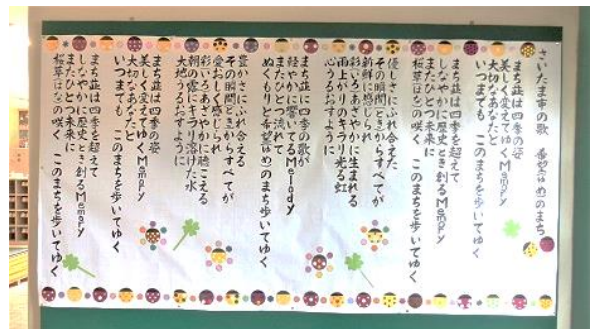 さいたま市の歌 希望(ゆめ)のまち
まち並は四季の姿
美しく変えてゆくMemory
大切なあなたと
いつまでも このまちを歩いてゆく
まち並は四季を超えて
しなやかに歴史(とき)創るMemory
またひとつ未来に
桜草(はな)の咲く このまちを歩いてゆく
優しさにふれ合えた
その瞬間(とき)からすべてが
新鮮に感じられ
彩(いろ)あざやかに生まれる
雨上がりのキラリ光る虹
心うるおすように
まち並に四季の歌が
軽やかに響いてるMelody
またひとつ流れて
ぬくもりと希望(ゆめ)のまち歩いてゆく
豊かさにふれ合える
その瞬間(とき)からすべてが
愛おしく感じられ
彩(いろ)あざやかに聴こえる
朝の露にキラリ溶けた水
大地うるおすように
まち並は四季の姿
美しく変えてゆくMemory
大切なあなたと
いつまでも このまちを歩いてゆく
まち並は四季を超えて
しなやかに歴史(とき)創るMemory
またひとつ未来に
桜草(はな)の咲く このまちを歩いてゆく